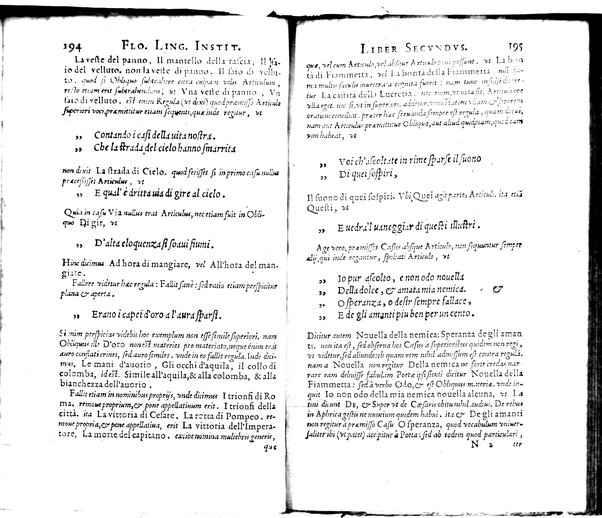 194 FLO. LING. INSTIT.
La veste del panno, Il mantello della rascia, Il sa-
io del velluto. non la veste di panno. Il saio di vellu-
to. quod si Obliquo subtrahere extra culpam velis Articulum,
recto etiam erit subtrahendum, vt Vna veste di panno, Vn
saio di velluto. est enim Regula (vt dixi) quod præmisso Articulo
superiori voce, præmittitur etiam sequenti, quæ inde regitur, vt
„ Contando i casi della uita nostra.
„ Che la strada del cielo hanno smarrita
non dixit La strada di Cielo. quod fecisset si in primo casu nullus
præcessisset Articulus, vt
„ E qual' è dritta uia di gire al cielo.
Quia in casu Via nullus erat Articulus, nec etiam fuit in Obli-
quo Di gir, vt
„ D'alta eloquenza sì soaui fiumi.
Hinc dicimus Ad hora di mangiare, vel All'hora del man-
giare.
Fallere videtur hæc regula: Fallit sanè: sed ratio etiam perspicitur
plana & aperta.
„ Erano i capei d'oro a l'aura sparsi.
Si mim perspicias videbis hoc exemplum non esse simile superiori, nam
Obliquus ille D'oro non est materies pro materiato, neque enim erāt ex
auro conflati crines, sed auro similes. vnde in eo fallit regula. Inde dici-
mus, Le mani d'auorio, Gli occhi d'aquila, il collo di
colomba, idest. Simile all'aquila, & alla colomba, & alla
bianchezza dell'auorio.
Fallit etiam in nominibus proprijs, vnde dicimus I trionfi di Ro
ma. remoue proprium, & pone appellatiuum erit. I trionfi della
città. ita La vittoria di Cesare, La rotta di Pompeo. re-
moue propria, & pone appellatiua, erit La vittoria dell'Impera-
tore, La morte del capitano. excipe nomina muliebris generis,
que
LIBER SECVNDVS. 195
quæ, vel cum Articulo, vel absque Articulo eam possunt. vt La bon
tà di Fiammetta, vel La bontà della Fiammetta. nisi fa-
ma multo sæculi inuetere a cognita fuerit: nam tunc cum Articulo di-
citur La castità della Lucretia. nec enim, vt nota sit, Articulo ne
vlla eget. nec si, vt in super. ore. additur, vitio etiam vllam & leporem
orationi conciliat. præter hæc seruanda semper est regula, quum dentem,
nam aut Articulus præmittitur Obliquo, aut aliud quodpiam, quod eam
vim habeat, vt
„ Voi ch'ascoltate in rime sparse il suono
„ Di quei sospiri,
Il suono di quei sospiri. Vbi, Quei agit partes, Articuli. ita etiā
Questi, vt
„ E uedrà'l uaneggiar di questi illustri.
Age vero, præmisses Casus absque Articulo, non sequuntur semper
alij, qui inde regantur, spoliati Articulo, vt
„ Io pur ascolto, e non odo nouella
„ Della dolce, & amata mia nemica. &
„ O speranza, o desir sempre fallace,
„ E de gli amanti piu ben per un cento.
Dicitur autem Nouella della nemica: Speranza de gli aman
ti. non ita est, sed obserua hos Casus a superioribus quidem non regi,
vt videtur, sed aliunde, ob quam rem nihil admissum est contra regulā.
nam a Nouella non regitur Della nemica. ne forte credas nar
rare eam debuisse fabulam Poëta ipsissimi dicitur Nouella della
Fiammetta: sed à verbo Odo, & est Obliquus materiæ. vnde in-
quit Io non odo della mia nemica nouella alcuna, vt La
tini diunt De, & Super vt de Casus obitu nihil audiui. De rebus
in Aphrica gestis ne nuncium quidem habui. ita & De gli amanti
non regitur à præmisso Casu O speranza, quod vocabulum vniuer-
saliter ibi (vt patet) accipitur à Poëta: sed ab eodem quod particulari,
N 2 ter